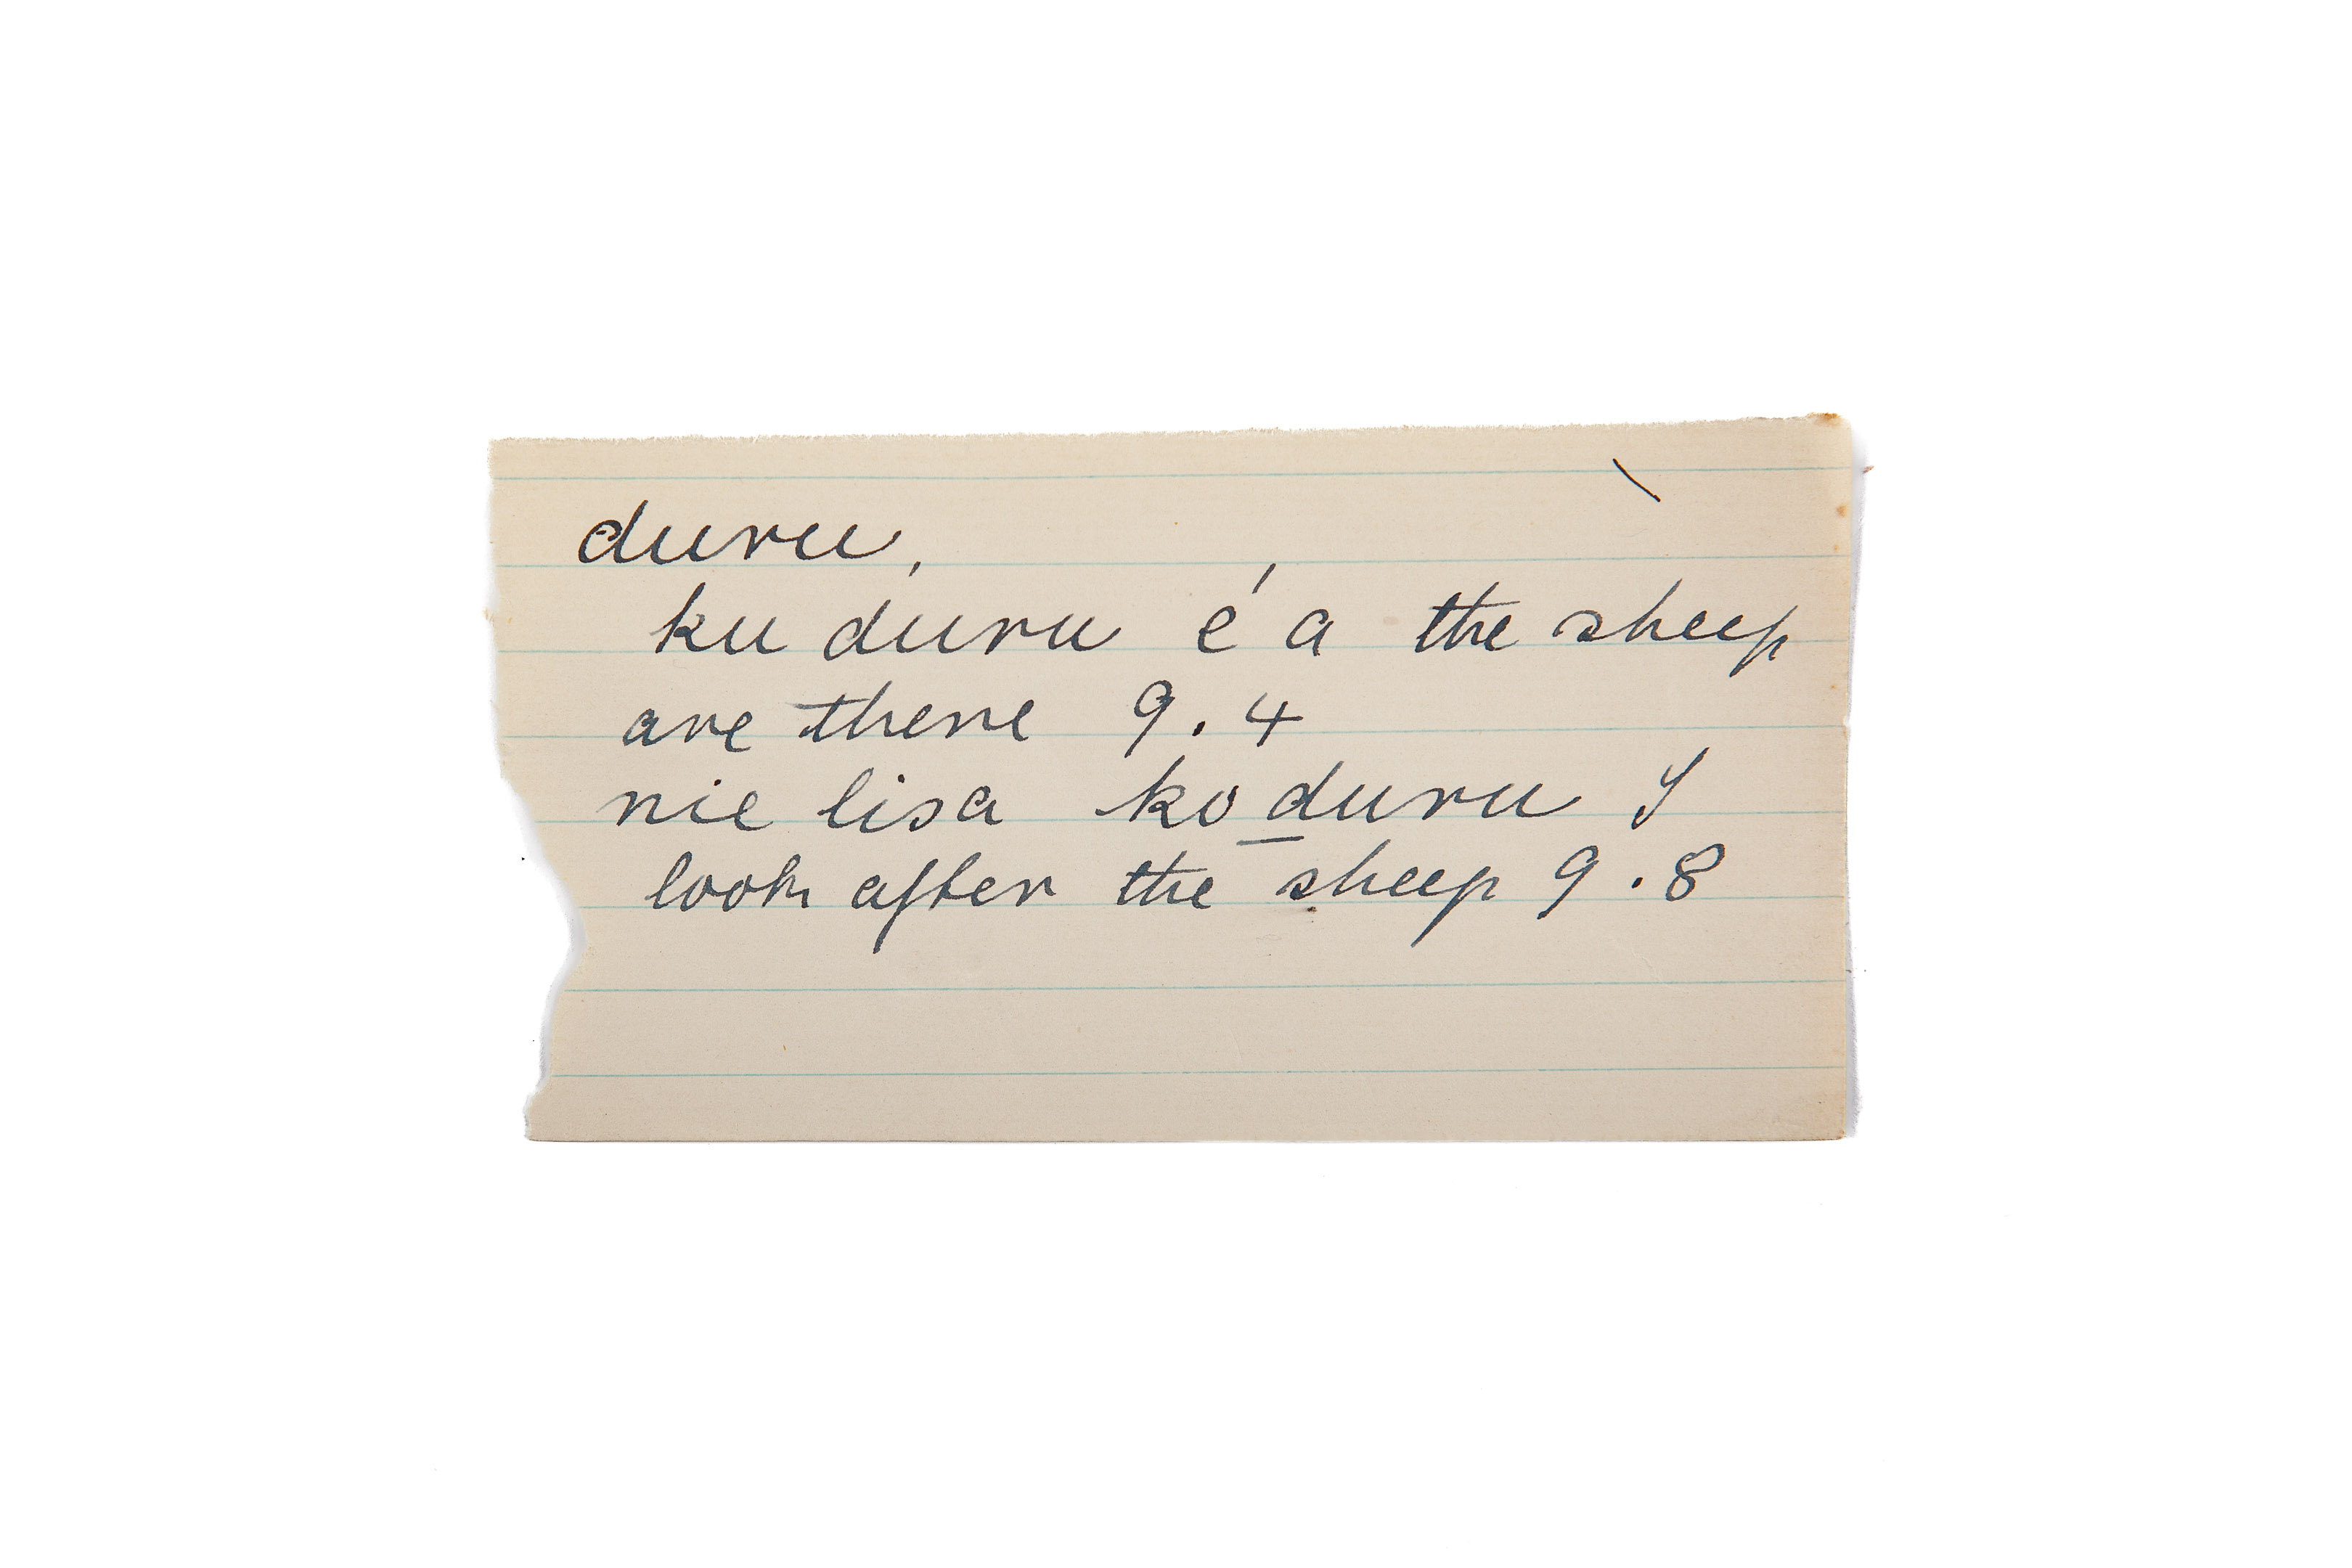 duru,
ku duru é a the sheep
are there 9.4
nie lisa ko duru I
look after the sheep 9.8